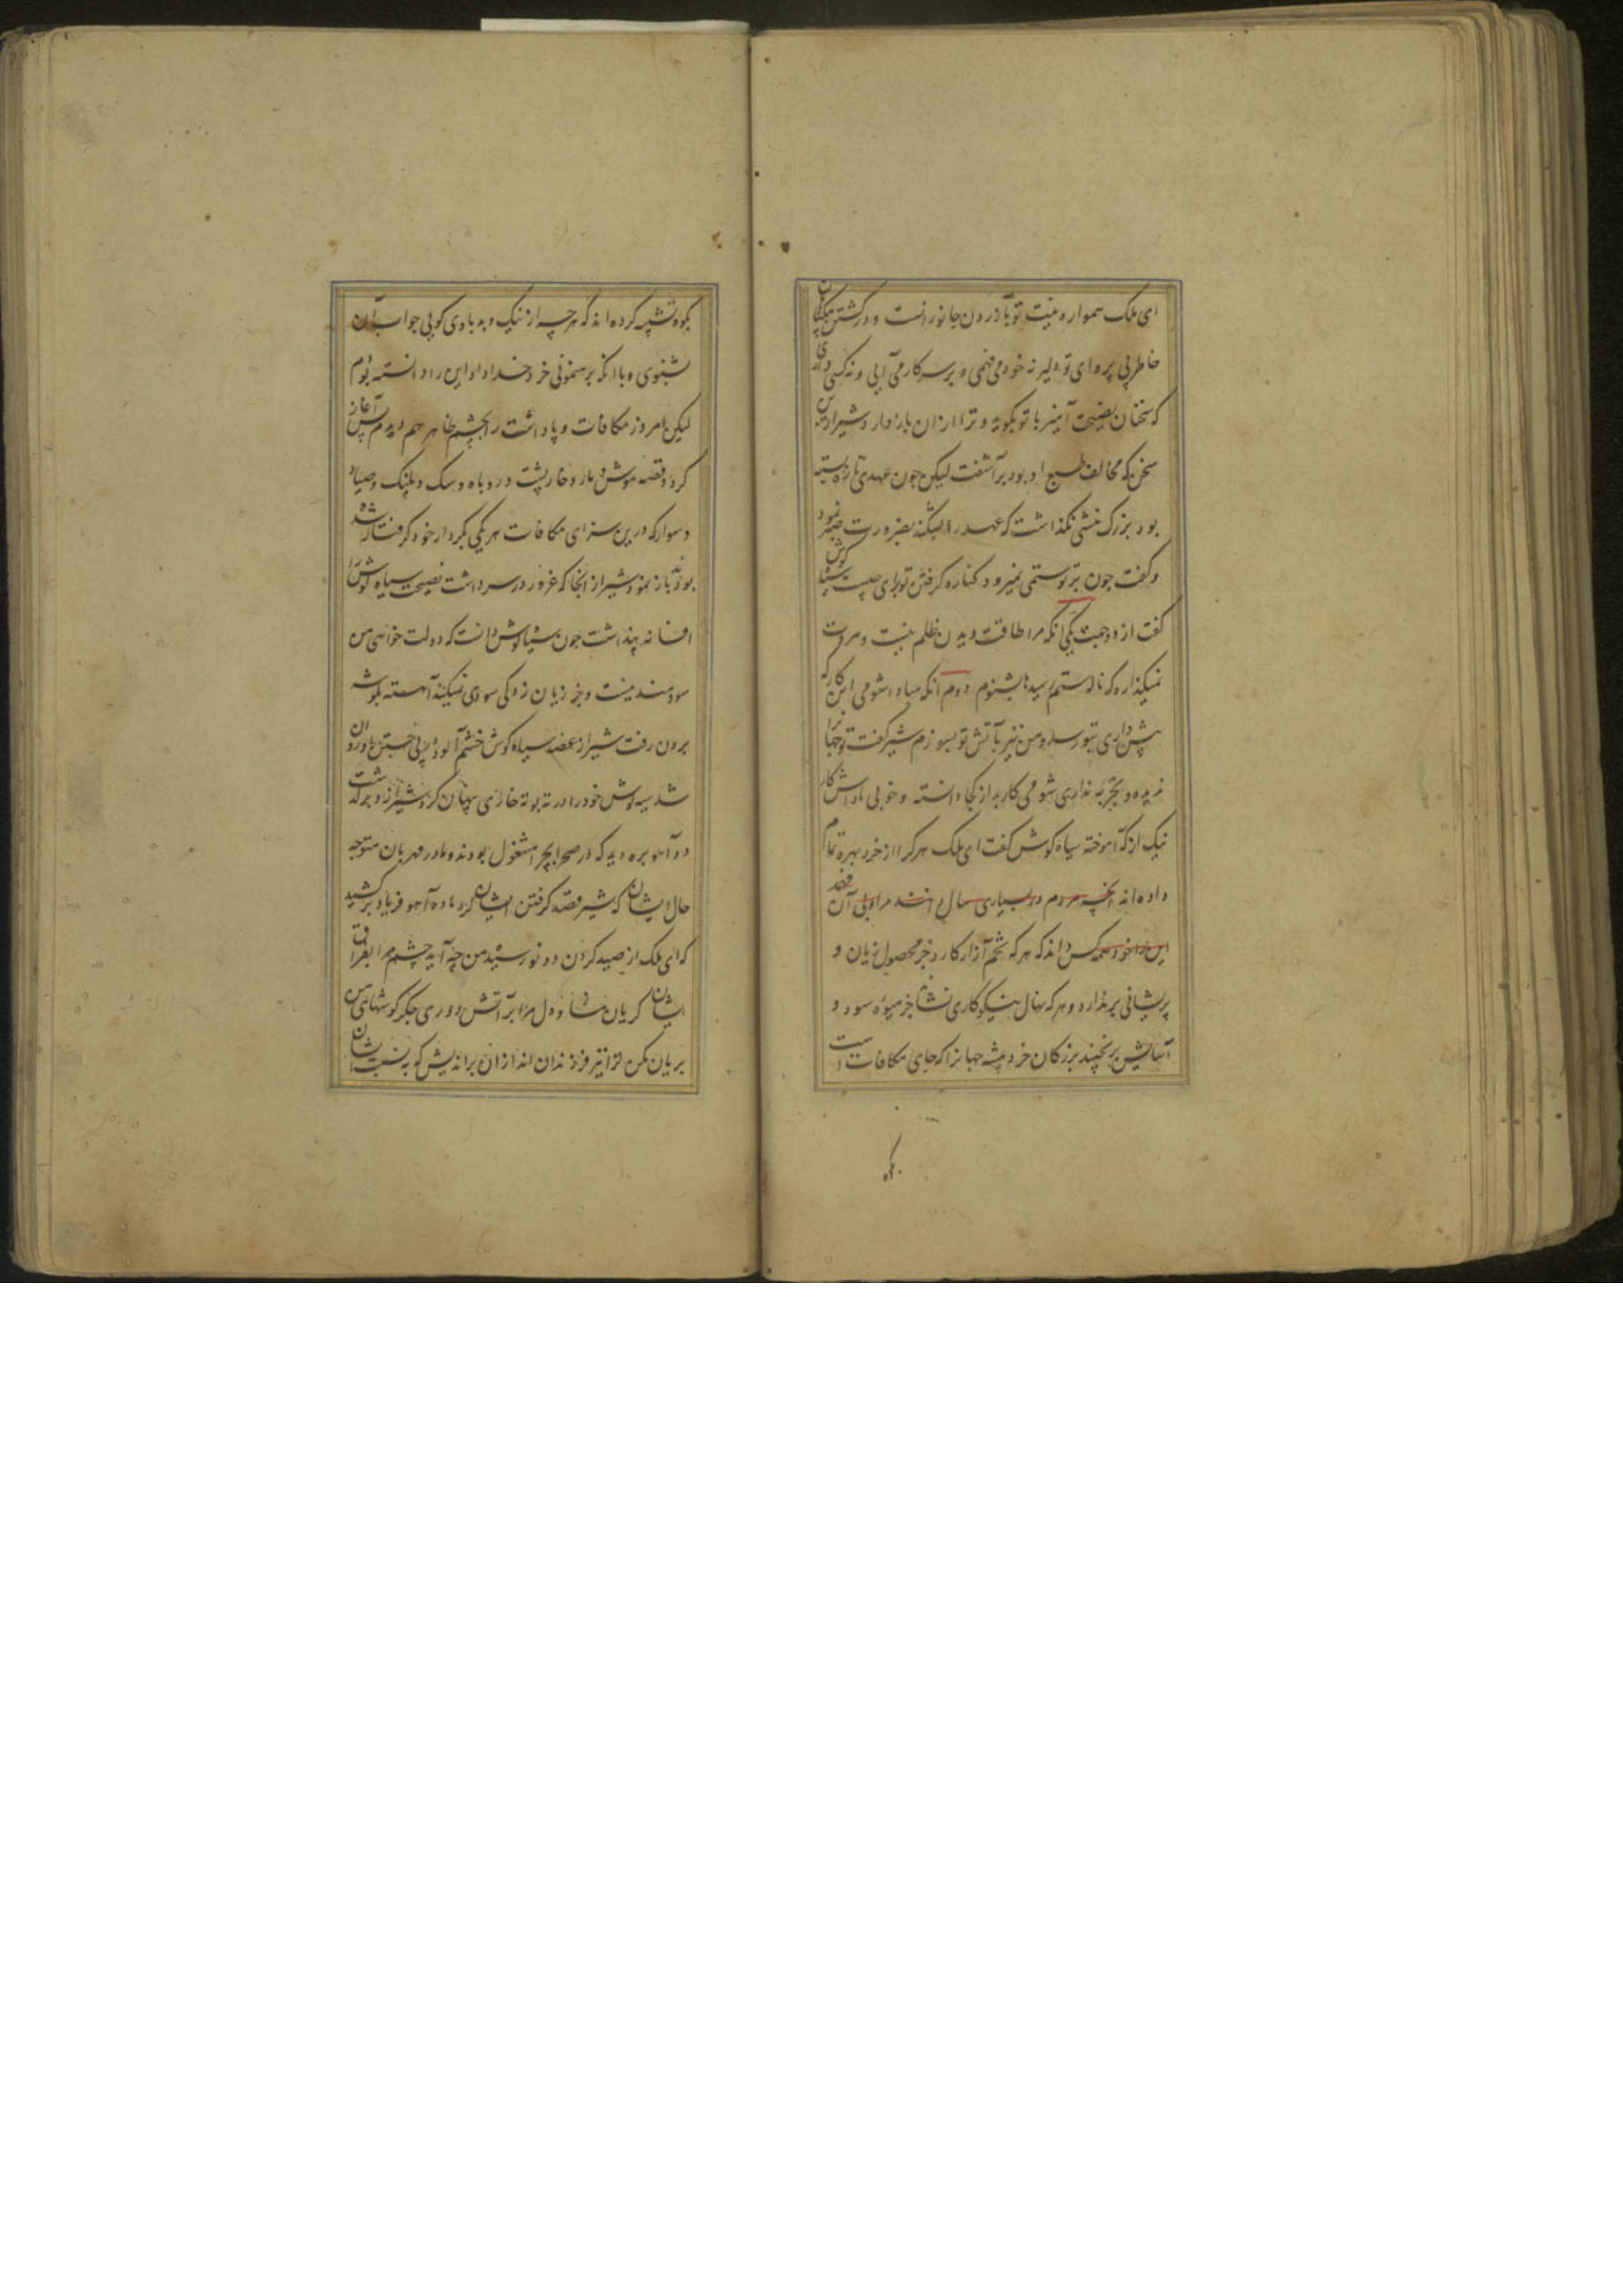 ای ملک همواره نیت تو بآزردن جانورانست و در کشتن بیگناهان
خاطر بی پروای تو دلیر نه خود می فهمی و بر سر کار می آیی و نه کسی داری
که سخنان نصیحت آمیز با تو بگوید و ترا ازان باز دارد شیر ازین
سخن که مخالف طبع او بود برآشفت لیکن چون عهدی تازه بسته
بود بزرگ منشی نگذاشت که عهد را بشکند بضرورت صبر نمود
و گفت چون بر تو ستمی نمیرود کناره گرفتن تو برای چیست سیاه گوش
گفت از دو جهت یکی آنکه مرا طاقت دیدن ظلم نیست و مروت
نمیگذارد که ناله ستم رسیدها بشنوم دوم آنکه مبادا شومی این کار که
پیش داری بتو رسد و من نیز بآتش تو بسوزم شیر گفت تو جهانرا
ندیده و تجربه نداری شومی کار بد از کجا دانسته و خوبی پاداش کار
نیک از که آموخته سیاه گوش گفت ای ملک هر کرا از خرد بهره تمام
داده اند آنچه مردم در بسیاری سال دانند در اول آن فهمد
این را خود همه کس داند که هر که تخم آزار کارد جز محصول زیان و
پریشانی بر ندارد و هر که نهال نیکوکاری نشاند جز میوه سود و
آسایش بر نچیند بزرگان خرد پیشه جهانرا که جای مکافات است
بکوه
بکوه تشبیه کرده اند که هر چه از نیک و بد با وی گویی جواب آن
بشنوی و با آنکه برهنمونی خرد خداداد این را دانسته بودم
لیکن امروز مکافات و پاداشت را بچشم ظاهر هم دیدم پس آغاز
کرد و قصه موش و مار و خارپشت و روباه و سگ و پلنگ و صیاد
و سوار که درین سرای مکافات هر یکی بکردار خود گرفتار شده
بودند باز نمود شیر از آنجا که غرور در سر داشت نصیحت سیاه گوش را
افسانه پنداشت چون سیاه گوش دانست که دولت خواهی من
سودمند نیست و جز زیان زدگی سودی نمیکند آهسته بگوشه
برون رفت شیر از غصه سیاه گوش خشم آلود در پی جستن او روان
شد سیه گوش خود را در ته بوته خاری پنهان کرد شیر ازو در گذشت
دو آهو بره دید که در صحرا بچرا مشغول بودند و مادر مهربان متوجه
حال ایشان که شیر قصد گرفتن ایشان کرد ماده آهو فریاد بر کشید
که ای ملک از صید کردن دو نورسیده من چه آید چشم مرا بفراق
ایشان گریان مساز و دل مرا بر آتش دوری جگر گوشهای من
بریان مکن ترا نیز فرزندان اند ازان براندیش که بنسبت ایشان